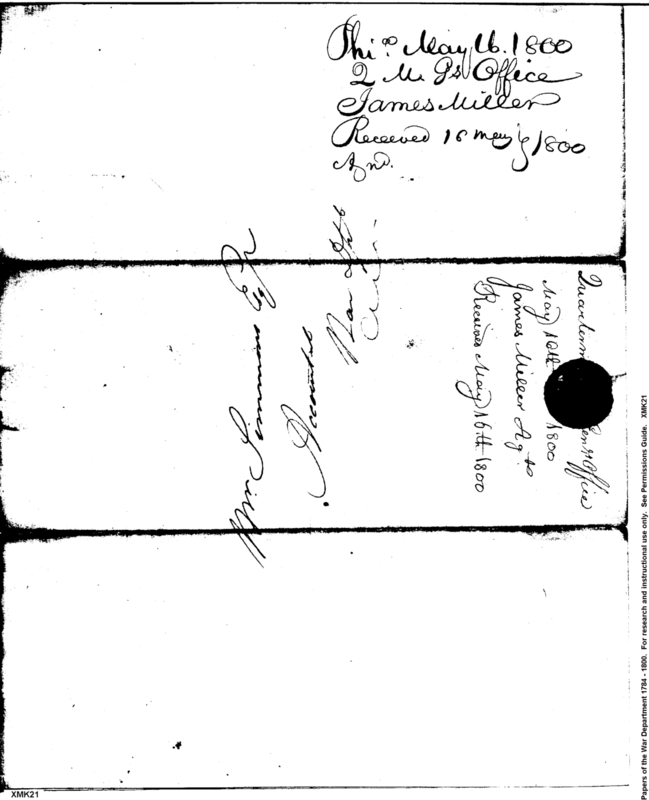 Phi.ª May 16. 1800
Q M Gs Office
James Miller
Received 16 may 1800
Quarterm Genrl Office
May 16th 1800
James Miller Ag. to
Received May 16th 1800
War
Wm Simmons Esqr
XMK21
Papers of the War Department 1784 - 1800. For research and instructional use only. See Permissions Guide. XMK21